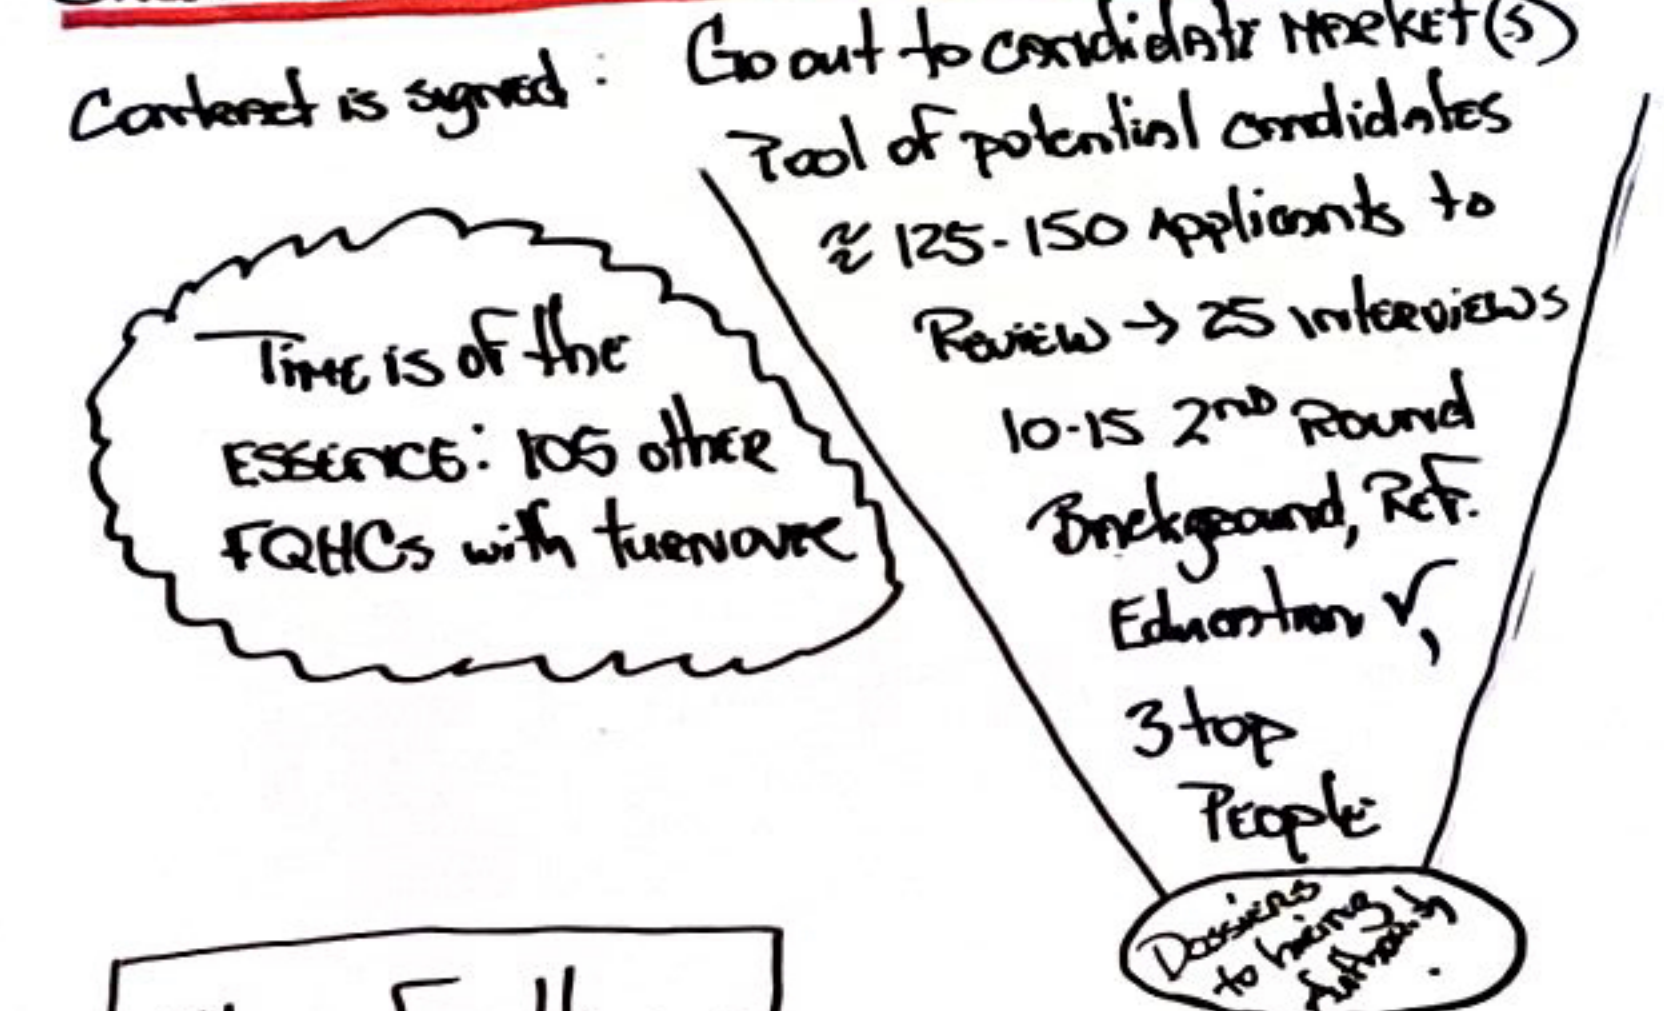 Contract is signed: Go out to candidate market(s)
Pool of potential candidates
≈ 125-150 Applicants to
Review → 25 interviews
10-15 2nd Round
Background, Ref.
Education ✓,
3 top
People
Dossiers
to hiring
Authority.
Time is of the
Essence: 105 other
FQHCs with turnover